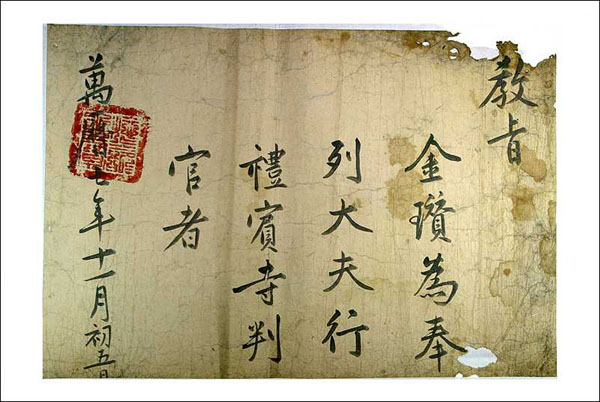 教旨
金瓚為奉
列大夫行
禮賓寺判
官者
萬曆七年十一月初五日